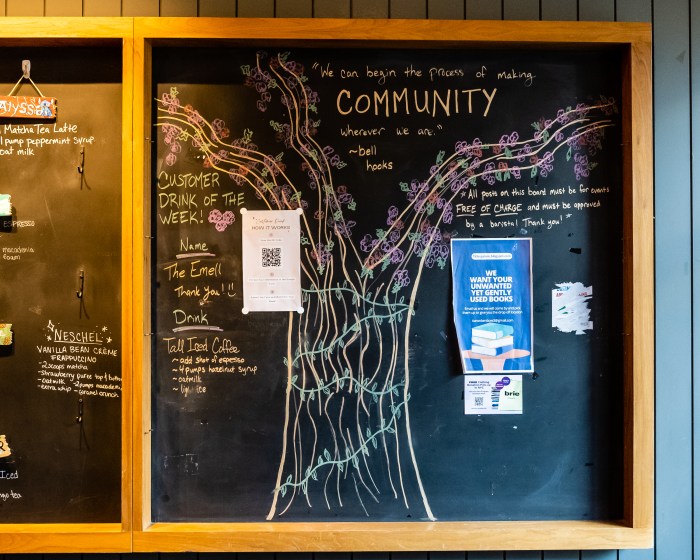 Alyssa
Matcha Tea Latte
1 pump peppermint syrup
oat milk
Espresso
macadamia
foam
~NESCHEL~
VANILLA BEAN CRÈME
FRAPPUCCINO
-2 scoops matcha
-strawberry puree top & bottom
-oatmilk -2 pumps macadamia
-extra whip -caramel crunch
Iced
tea
"We can begin the process of making
COMMUNITY
wherever we are."
~bell
hooks
CUSTOMER
DRINK OF THE
WEEK!
Name
The Emell
Thank you!!
Drink
Tall Iced Coffee
~ add shot of espresso
~ 4 pumps hazelnut syrup
~ oatmilk
~ light ice
HOW IT WORKS
* All posts on this board must be for events
FREE OF CHARGE and must be approved
by a barista! Thank you! *
WE
WANT YOUR
UNWANTED
YET GENTLY
USED BOOKS
brie